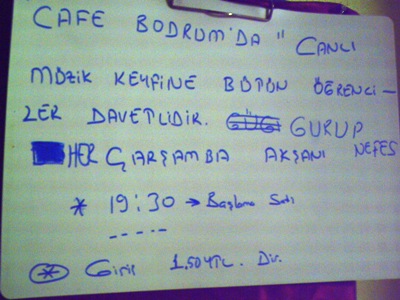 CAFE BODRUM'DA " CANLI
MÜZİK KEYFİNE BÜTÜN ÖĞRENCİ-
LER DAVETLİDİR. GURUP
HER ÇARŞAMBA AKŞANI NEFES
* 19:30 → Başlama Sati
* Giriş 1.50 YTL. Dir.